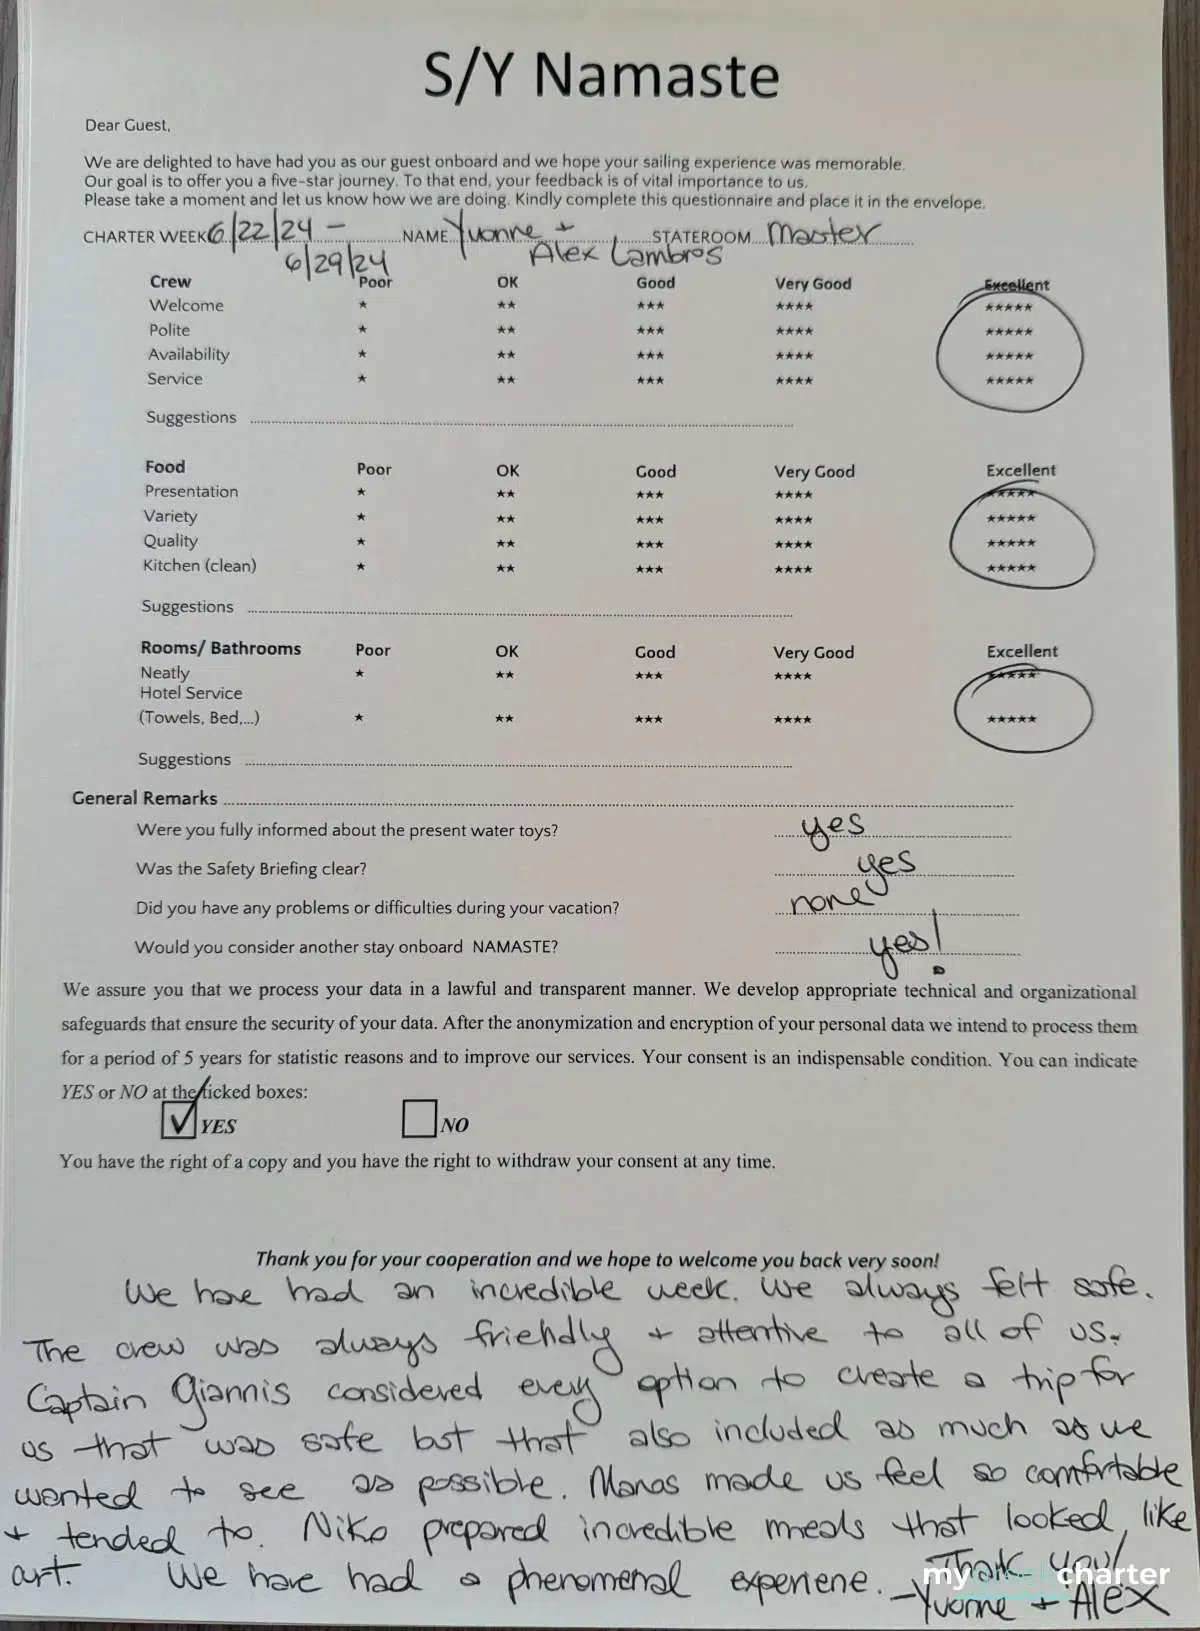 S/Y Namaste
Dear Guest,
We are delighted to have had you as our guest onboard and we hope your sailing experience was memorable.
Our goal is to offer you a five-star journey. To that end, your feedback is of vital importance to us.
Please take a moment and let us know how we are doing. Kindly complete this questionnaire and place it in the envelope.
CHARTER WEEK 6/22/24 - NAME Yvonne + STATEROOM Master
6/29/24 Alex Lambros
Crew Poor OK Good Very Good Excellent
Welcome ★ ★★ ★★★ ★★★★ ★★★★★
Polite ★ ★★ ★★★ ★★★★ ★★★★★
Availability ★ ★★ ★★★ ★★★★ ★★★★★
Service ★ ★★ ★★★ ★★★★ ★★★★★
Suggestions
Food Poor OK Good Very Good Excellent
Presentation ★ ★★ ★★★ ★★★★ ★★★★★
Variety ★ ★★ ★★★ ★★★★ ★★★★★
Quality ★ ★★ ★★★ ★★★★ ★★★★★
Kitchen (clean) ★ ★★ ★★★ ★★★★ ★★★★★
Suggestions
Rooms/ Bathrooms Poor OK Good Very Good Excellent
Neatly ★ ★★ ★★★ ★★★★ ★★★★★
Hotel Service
(Towels, Bed,...) ★ ★★ ★★★ ★★★★ ★★★★★
Suggestions
General Remarks
Were you fully informed about the present water toys? yes
Was the Safety Briefing clear? yes
Did you have any problems or difficulties during your vacation? none
Would you consider another stay onboard NAMASTE? yes!
We assure you that we process your data in a lawful and transparent manner. We develop appropriate technical and organizational
safeguards that ensure the security of your data. After the anonymization and encryption of your personal data we intend to process them
for a period of 5 years for statistic reasons and to improve our services. Your consent is an indispensable condition. You can indicate
YES or NO at the ticked boxes:
✓ YES NO
You have the right of a copy and you have the right to withdraw your consent at any time.
Thank you for your cooperation and we hope to welcome you back very soon!
We have had an incredible week. We always felt safe.
The crew was always friendly + attentive to all of us.
Captain Giannis considered every option to create a trip for
us that was safe but that also included as much as we
wanted to see as possible. Manos made us feel so comfortable
+ tended to. Niko prepared incredible meals that looked like
art. We have had a phenomenal experiene. Thank you!
-Yvonne + Alex
mygreekcharter